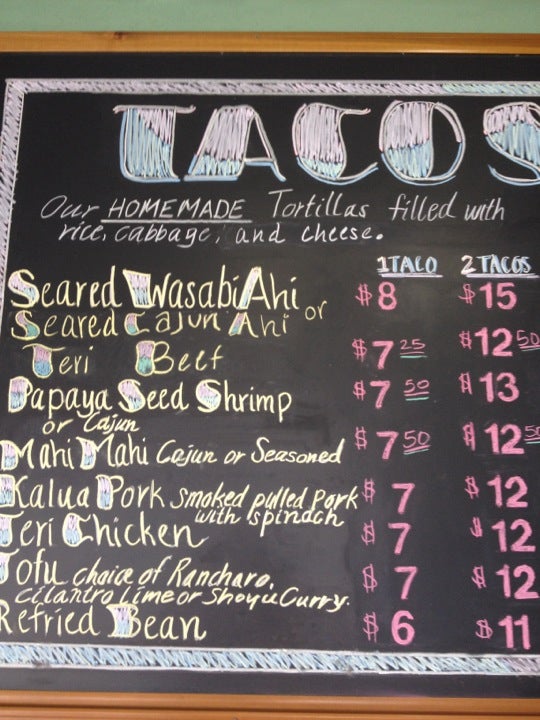 TACOS
Our HOMEMADE Tortillas filled with
rice, cabbage, and cheese.
1 TACO 2 TACOS
Seared Wasabi Ahi or $8 $15
Seared Cajun Ahi
Teri Beef $7 25 $12 50
Papaya Seed Shrimp $7 50 $13
or Cajun
Mahi Mahi Cajun or Seasoned $7 50 $12 50
Kalua Pork smoked pulled Pork $7 $12
with spinach
Teri Chicken $7 $12
Tofu choice of Ranchero, $7 $12
cilantro Lime or Shoyu Curry.
Refried Bean $6 $11